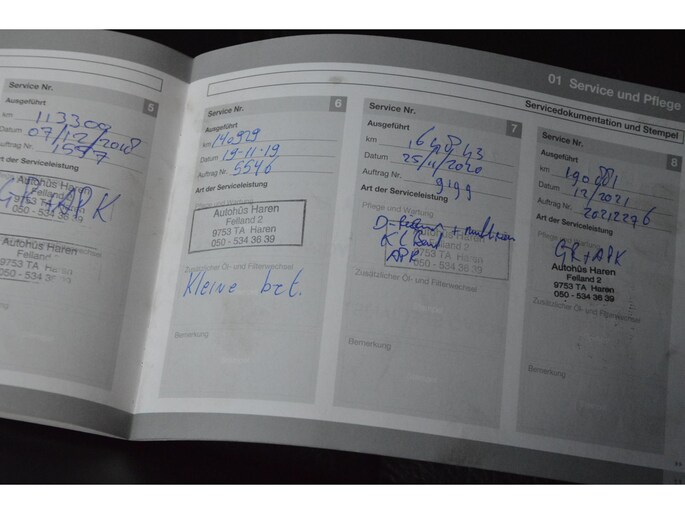 01 Service und Pflege
Servicedokumentation und Stempel
Service Nr. 5
Ausgeführt
km 113300
Datum 07/12/2018
Auftrag Nr. 1557
Art der Serviceleistung
GR+APK
Autohüs Haren
Felland 2
9753 TA Haren
050 - 534 36 39
Autohüs Haren
Felland 2
9753 TA Haren
050 - 534 36 39
Service Nr. 6
Ausgeführt
km 140929
Datum 19-11-19
Auftrag Nr. 5546
Art der Serviceleistung
Pflege und Wartung
Autohüs Haren
Felland 2
9753 TA Haren
050 - 534 36 39
Zusätzlicher Öl- und Filterwechsel
Kleine brt.
Bemerkung
Service Nr. 7
Ausgeführt
km 164843
Datum 25/11/2020
Auftrag Nr. 9199
Art der Serviceleistung
Pflege und Wartung
Autohüs Haren
Felland 2
9753 TA Haren
050 - 534 36 39
APK
Zusätzlicher Öl- und Filterwechsel
Bemerkung
Service Nr. 8
Ausgeführt
km 190.881
Datum 12/2021
Auftrag Nr. 20212276
Art der Serviceleistung
Pflege und Wartung
GR+APK
Autohüs Haren
Felland 2
9753 TA Haren
050 - 534 36 39
Zusätzlicher Öl- und Filterwechsel
Bemerkung